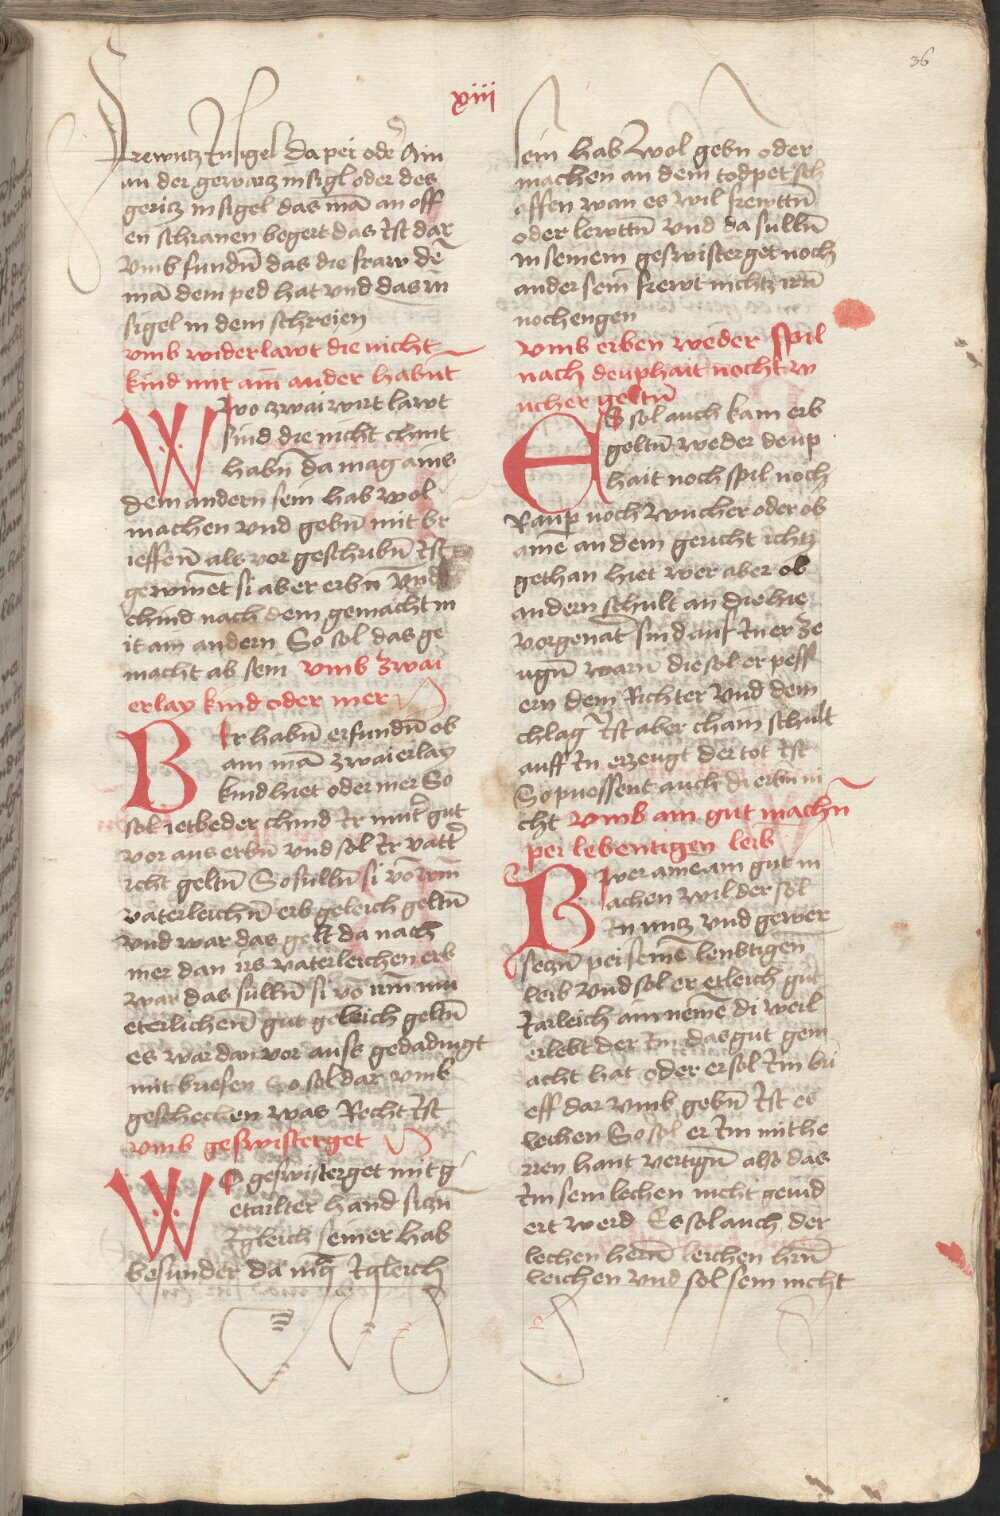 36
xiii
frewntz Insigel da pei oder Ain
an der gewartz insigl oder des
geritz insigel das mā an off
en schranen begert das Ist dar
Vmb fundn̄ das die fraw dē
mā dem ped hat vnd das in
sigel in dem schreien
vmb widerlawt die nicht
kind mit aīn ander habn̄t
Wo zwai wirt lawt
sind die nicht chint
habn̄ da mag ains
dem andern sein hab wol
machen vnd gebn̄ mit br
ieffen als vor geschribn̄ Ist
gewinēt si aber erbn̄ Vnd
chind nach dem gemacht m
it ain andern So sol das ge
macht ab sein vmb zwai
erlay kind oder mer
Bir habn̄ erfundn̄ ob
ain mā zwaierlay
kind hiet oder mer So
sol ietbeder chind Ir muetr gut
vor aus erbn̄ vnd sol Ir vattr
icht geltn̄ So sulln̄ si vō irm̄
vaterleichn̄ erb geleich geltn̄
vnd war das gelt da nach
mer dan irs vaterleichen erb
war das sulln̄ si vō irm̄ mu
eterlichen̄ gut geleich geltn̄
es war dan vor auss gedadingt
mit briefen So sol dar vmb
geschechen was Recht Ist
vmb geswisterget
WO geswisterget mit g
etailter hand siczn̄
Igleich seiner hab
besunder da mag Igleich
sein hab Wol gebn oder
machen an dem todpet sch
affen wan es wil frewttn̄
oder lewttn̄ vnd da sulln̄
in seinem geswisterget noch
ander sein frewt nichtz irn̄
noch engen
vmb erben weder spil
nach deuphait nocht w
ucher geltn̄
ES sol auch kain erb
geltn̄ weder deup
hait noch spil noch
Raup noch wucher oder ob
aine an dem gericht ichtz
gethan hiet wer aber ob
andern schult an die hie
vorgenāt sind auf In er ze
ugn̄ warn̄ die sol er peff
ern dem Richter vnd dem
chlagr Ist aber chain schult
auff In erzeugt der tot Ist
So puessent auch di erbn̄ ni
cht vmb ain gut machn̄
per lebentigen leib
Bwer aine ain gut m
achen wil der sol
In nutz vnd gewer
seczn̄ pei seinē lenbtigen
leib vnd sol er etleich gut
Iarleich ain nemē di weil
er lebt der Im das gut gem
acht hat oder er sol Im bri
eff dar vmb gebn̄ Ist es
lechen So sol er Im mit he
rren hant vertign̄ also das
Im sein lechen nicht gemd
ert werd Es sol auch der
lechen herrn̄ leichen hrn̄
leichen vnd sol sein nicht